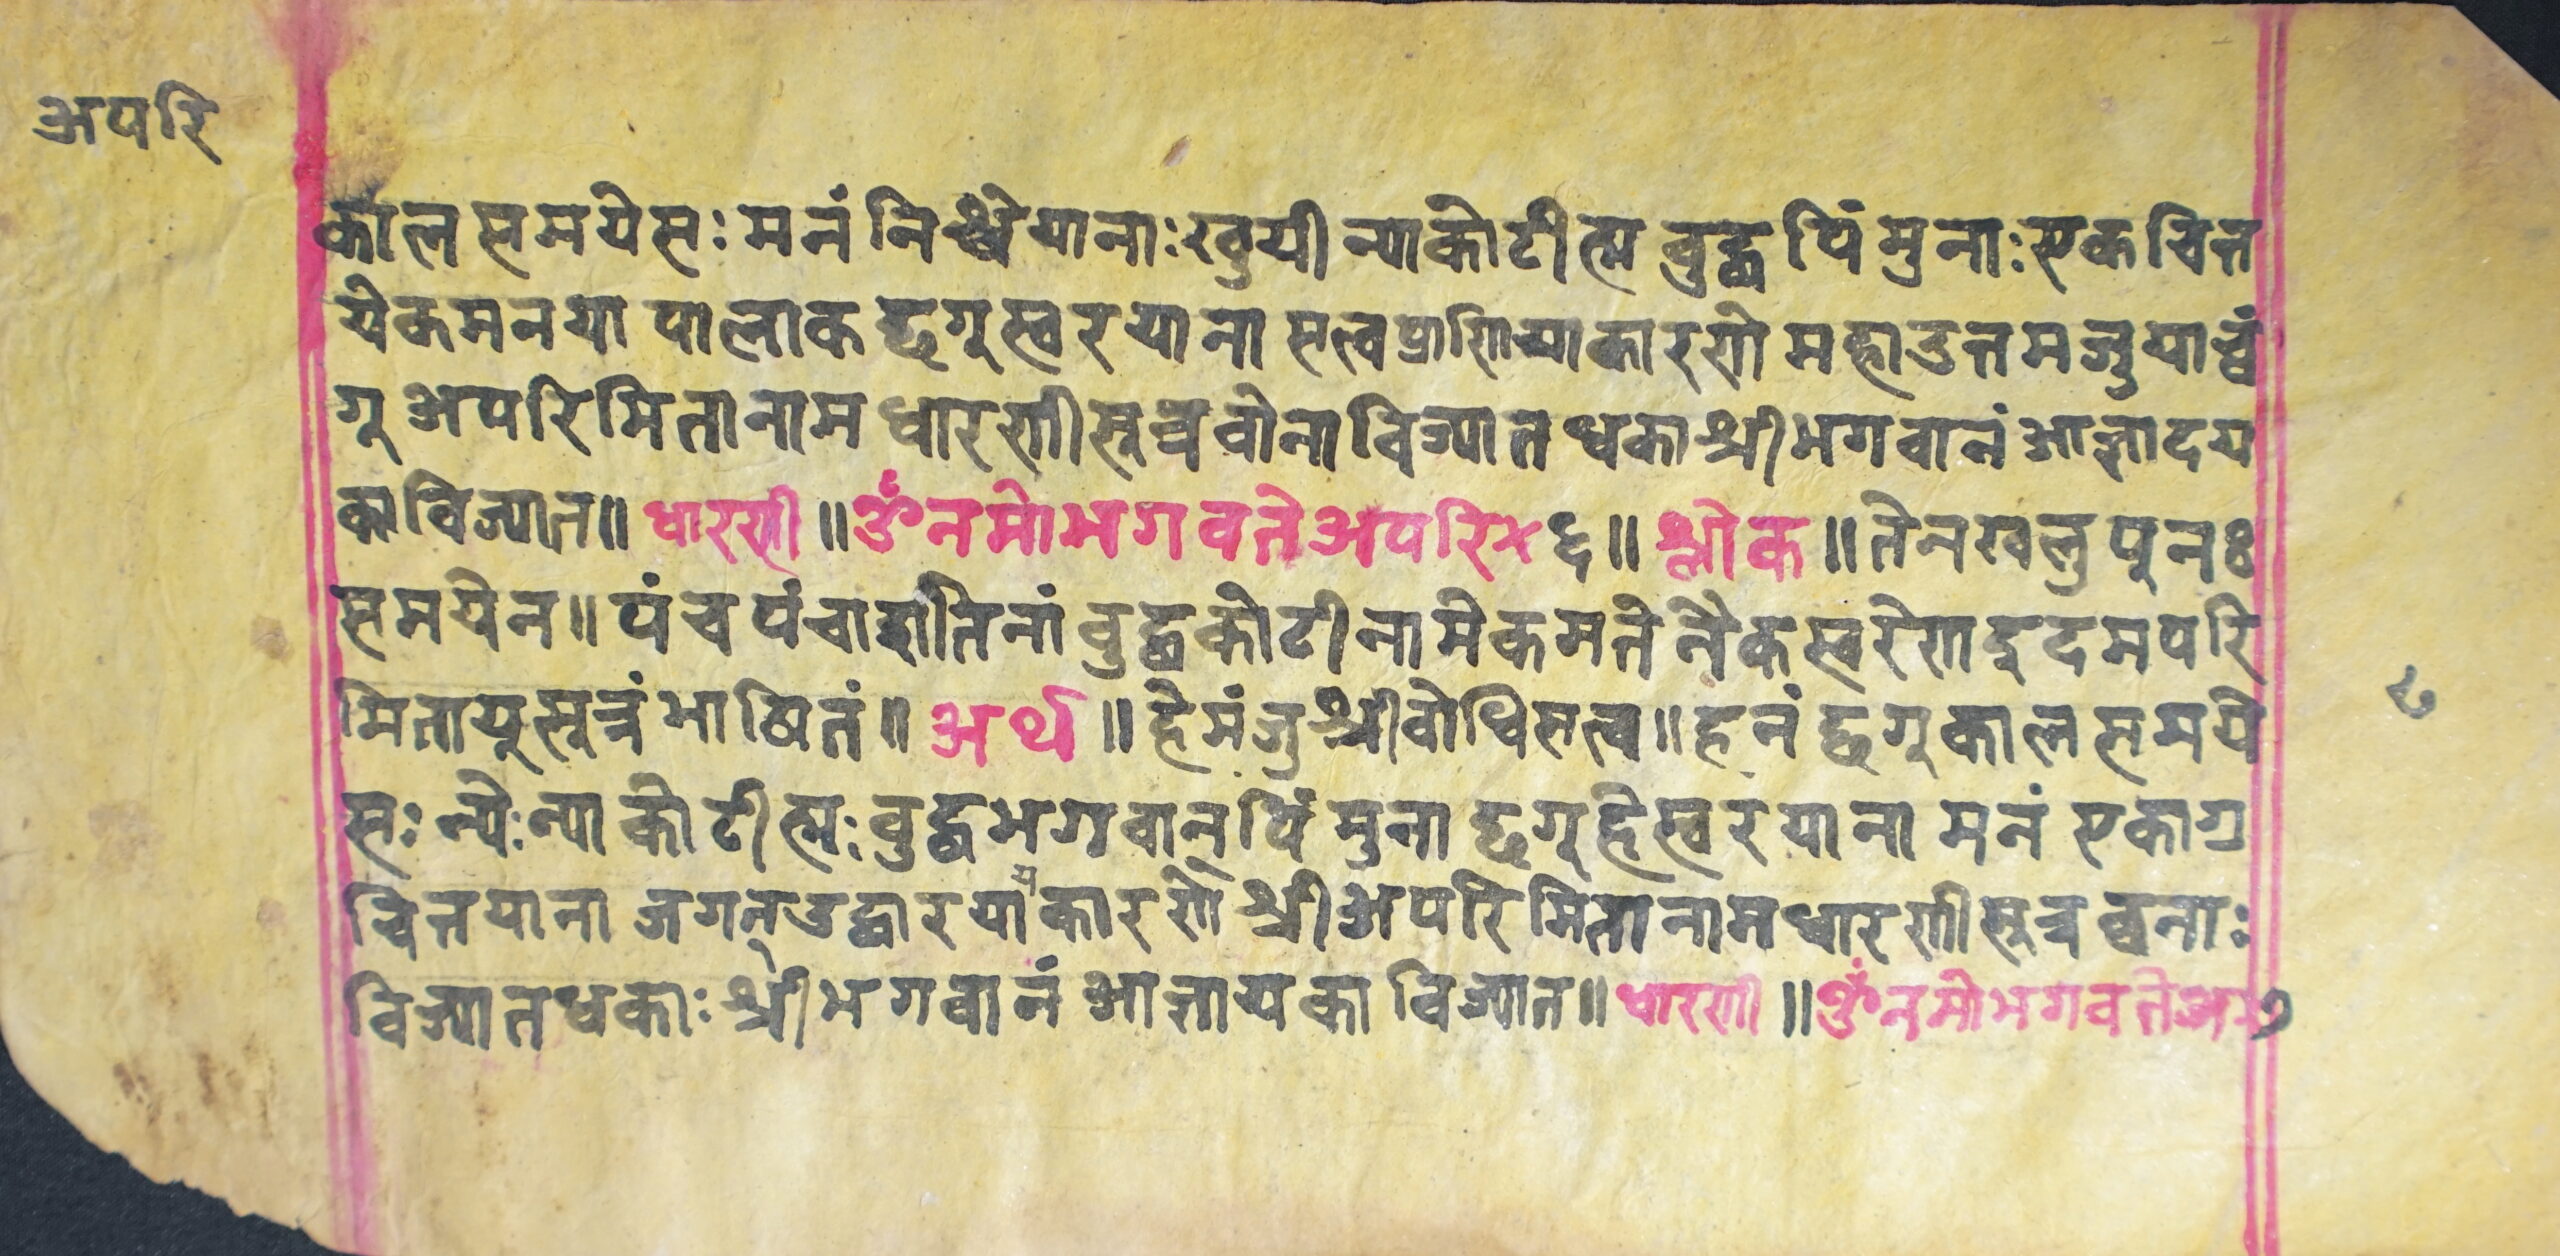 अपरि
काल समयेसः मनं निश्चेयानाः खुयी न्याकोटी त्म बुद्ध पिं मुनाः एकचित्त
येकमनया पालाक छगुस्वरयाना सत्वप्राणिया कारणे महाउत्तम जुयाच्वं
गु अपरिमितानाम धारणीसूत्र वोना विज्यात धका श्रीभगवानं आज्ञा दय
का विज्यात॥ धारणी॥ ॐ नमो भगवते अपरि× ६॥ श्लोक॥ तेन खलु पुनः
समयेन॥ पंच पंचाशतिनां बुद्धकोटीनामेकमतेनैकस्वरेण इदमपरि
मितायुसूत्रं भाषितं॥ अर्थ॥ हे मंजुश्री वोधिसत्व॥ हनं छगु काल समये
सः न्यैःन्याकोटी त्मः बुद्ध भगवान् पिं मुना छगू हे स्वरयाना मनं एकाग्र
चित्तयाना जगत् उद्धारयाय कारणे श्री अपरिमितानाम धारणीसूत्र व्वनाः
विज्यात धकाः श्रीभगवानं आज्ञा यका विज्यात॥ धारणी॥ ॐ नमो भगवते अ× ७
८